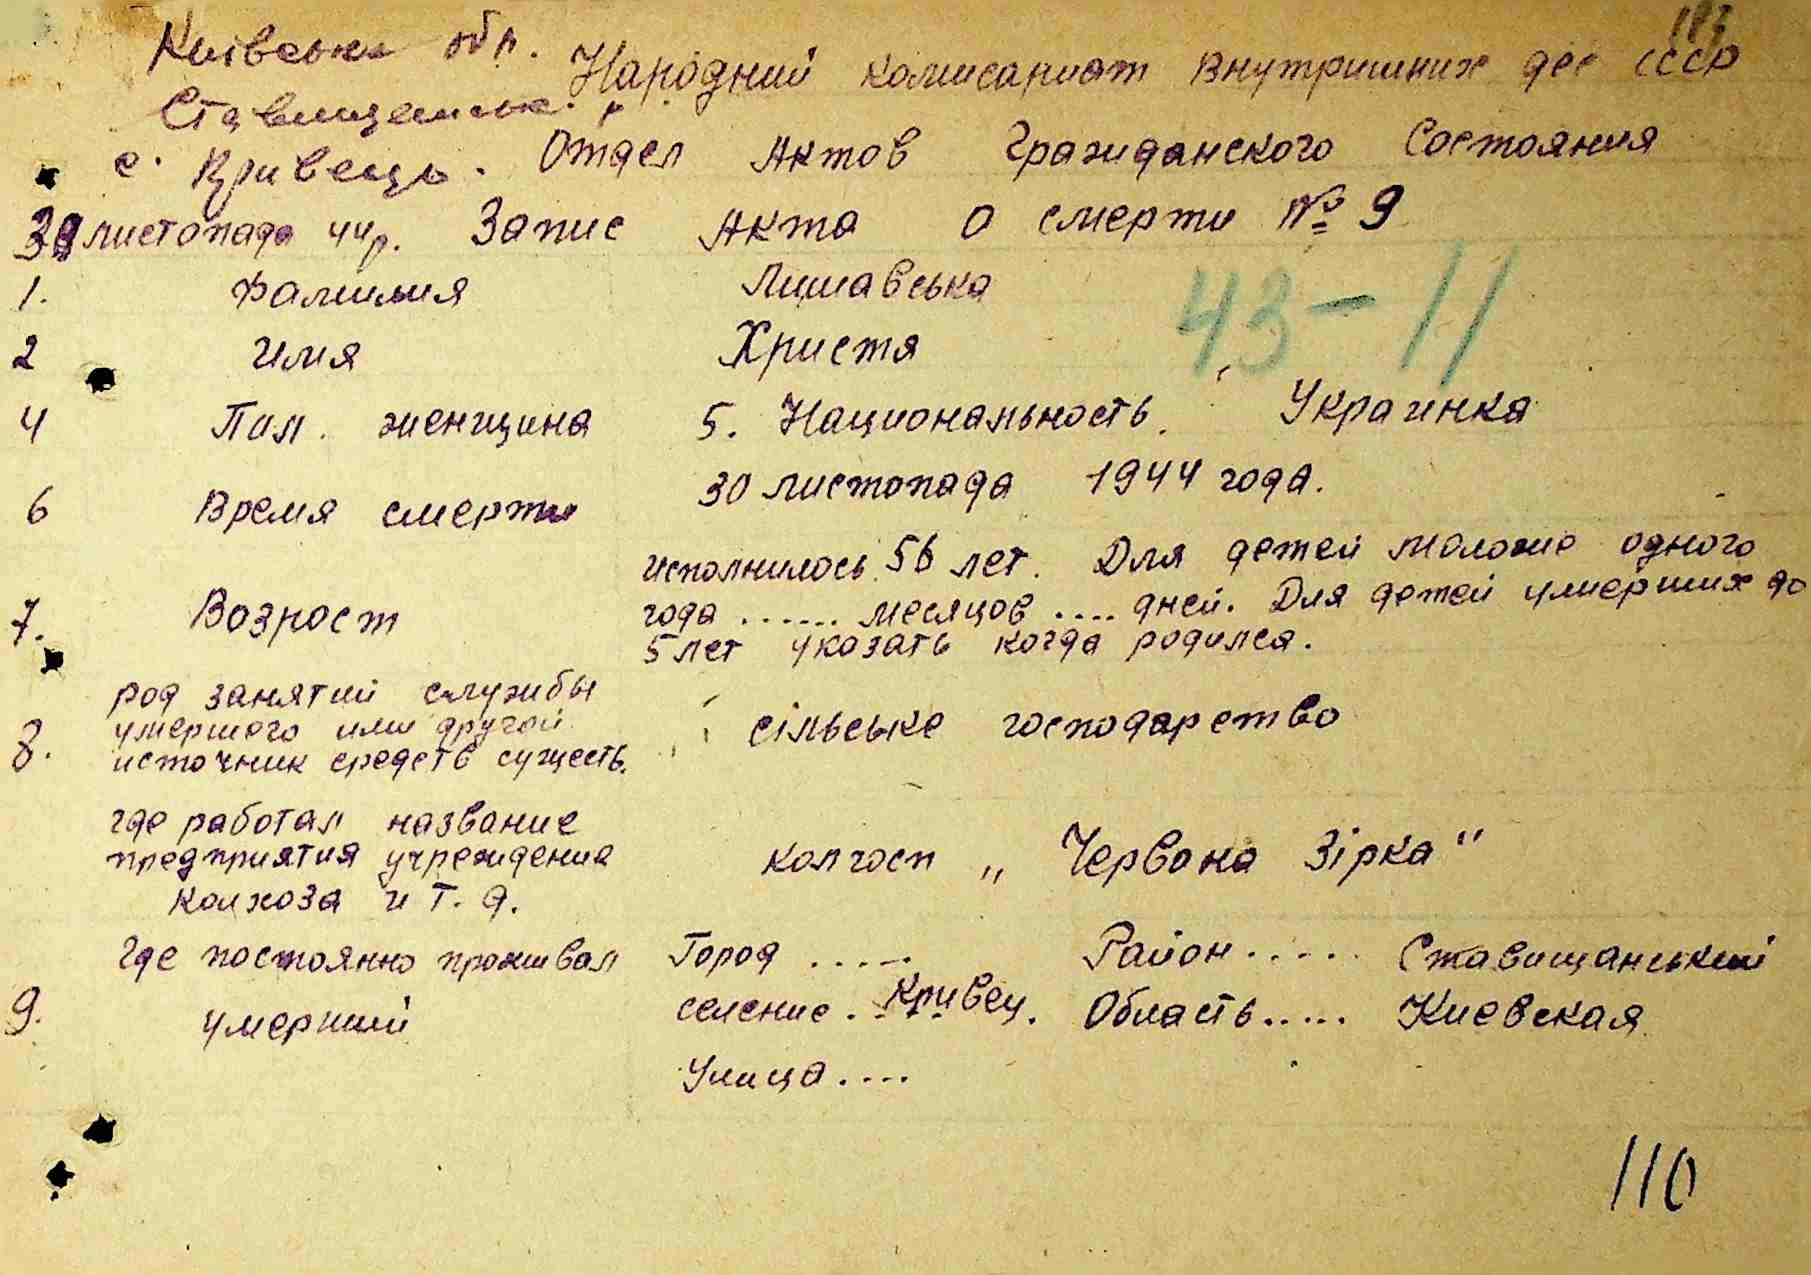 Київська обл.
Народний комисариат внутришних дел СССР
Ставищенськ. р.
с. Кривець.
Отдел Актов Гражданского Состояния
30 листопада 44р. Запис Акта о смерти № 9
43-11
1. Фамилия Лишавська
2 Имя Христя
4 Пол. женщина 5. Национальность. Украинка
6 Время смерти 30 листопада 1944 года.
7. Возрост исполнилось 56 лет. Для детей моложе одного
года ...... месяцов .... дней. Для детей умерших до
5 лет указать когда родился.
8. род занятий службы
умершого или другой
источник средств сущесть.
сільське господарство
где работал название
предприятия учреждение
колхоза и т. д.
колгосп „ Червона Зірка"
9. Где постоянно проживал
умерший
Город ..... Район ..... Ставищанський
селение. Кривец. Область ..... Киевская
Улица ....
110